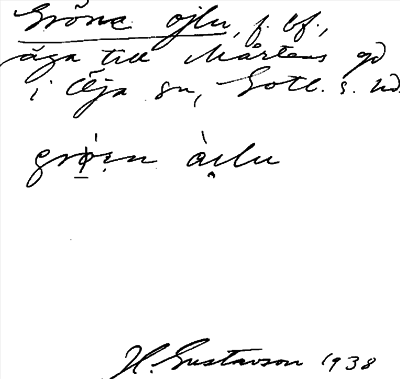 Gröne ojlu, f. lf.,
äga till Mårtens gd
i Eja sn, Gotl. s. hd.
grø̀ın àılu
H. Gustavson 1938